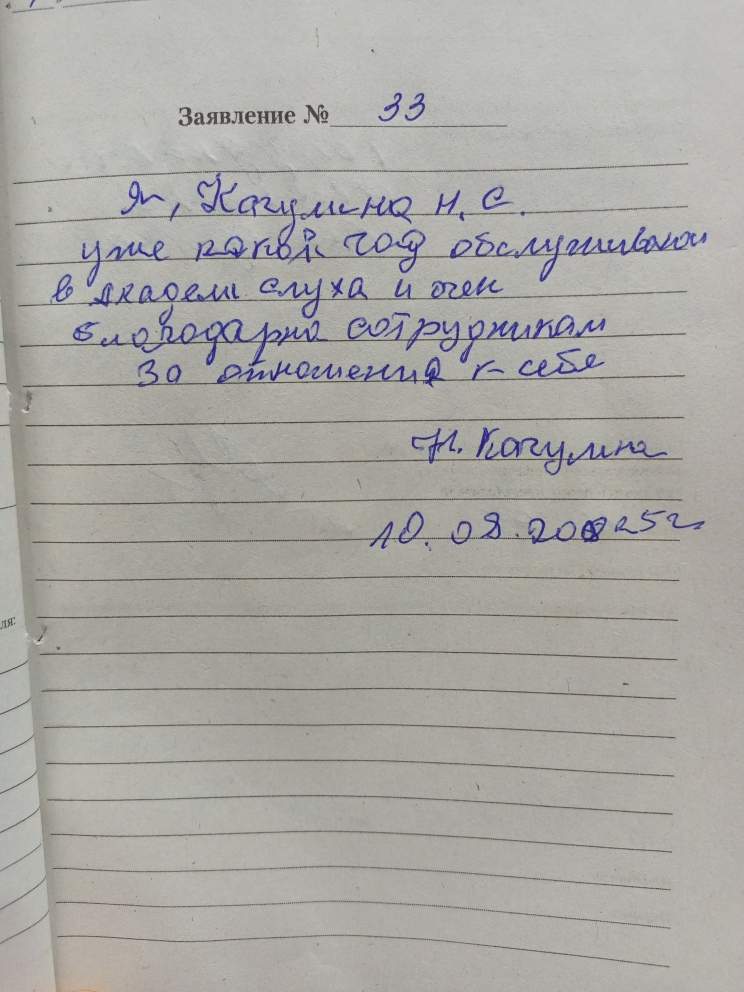 Заявление № 33
Я, Качулина Н. С.
уже какой год обслуживаюсь
в академи слуха и очен
благодарна сотрудникам
за отношения к себе
Н. Качулина
10.08.2025г.
ля: